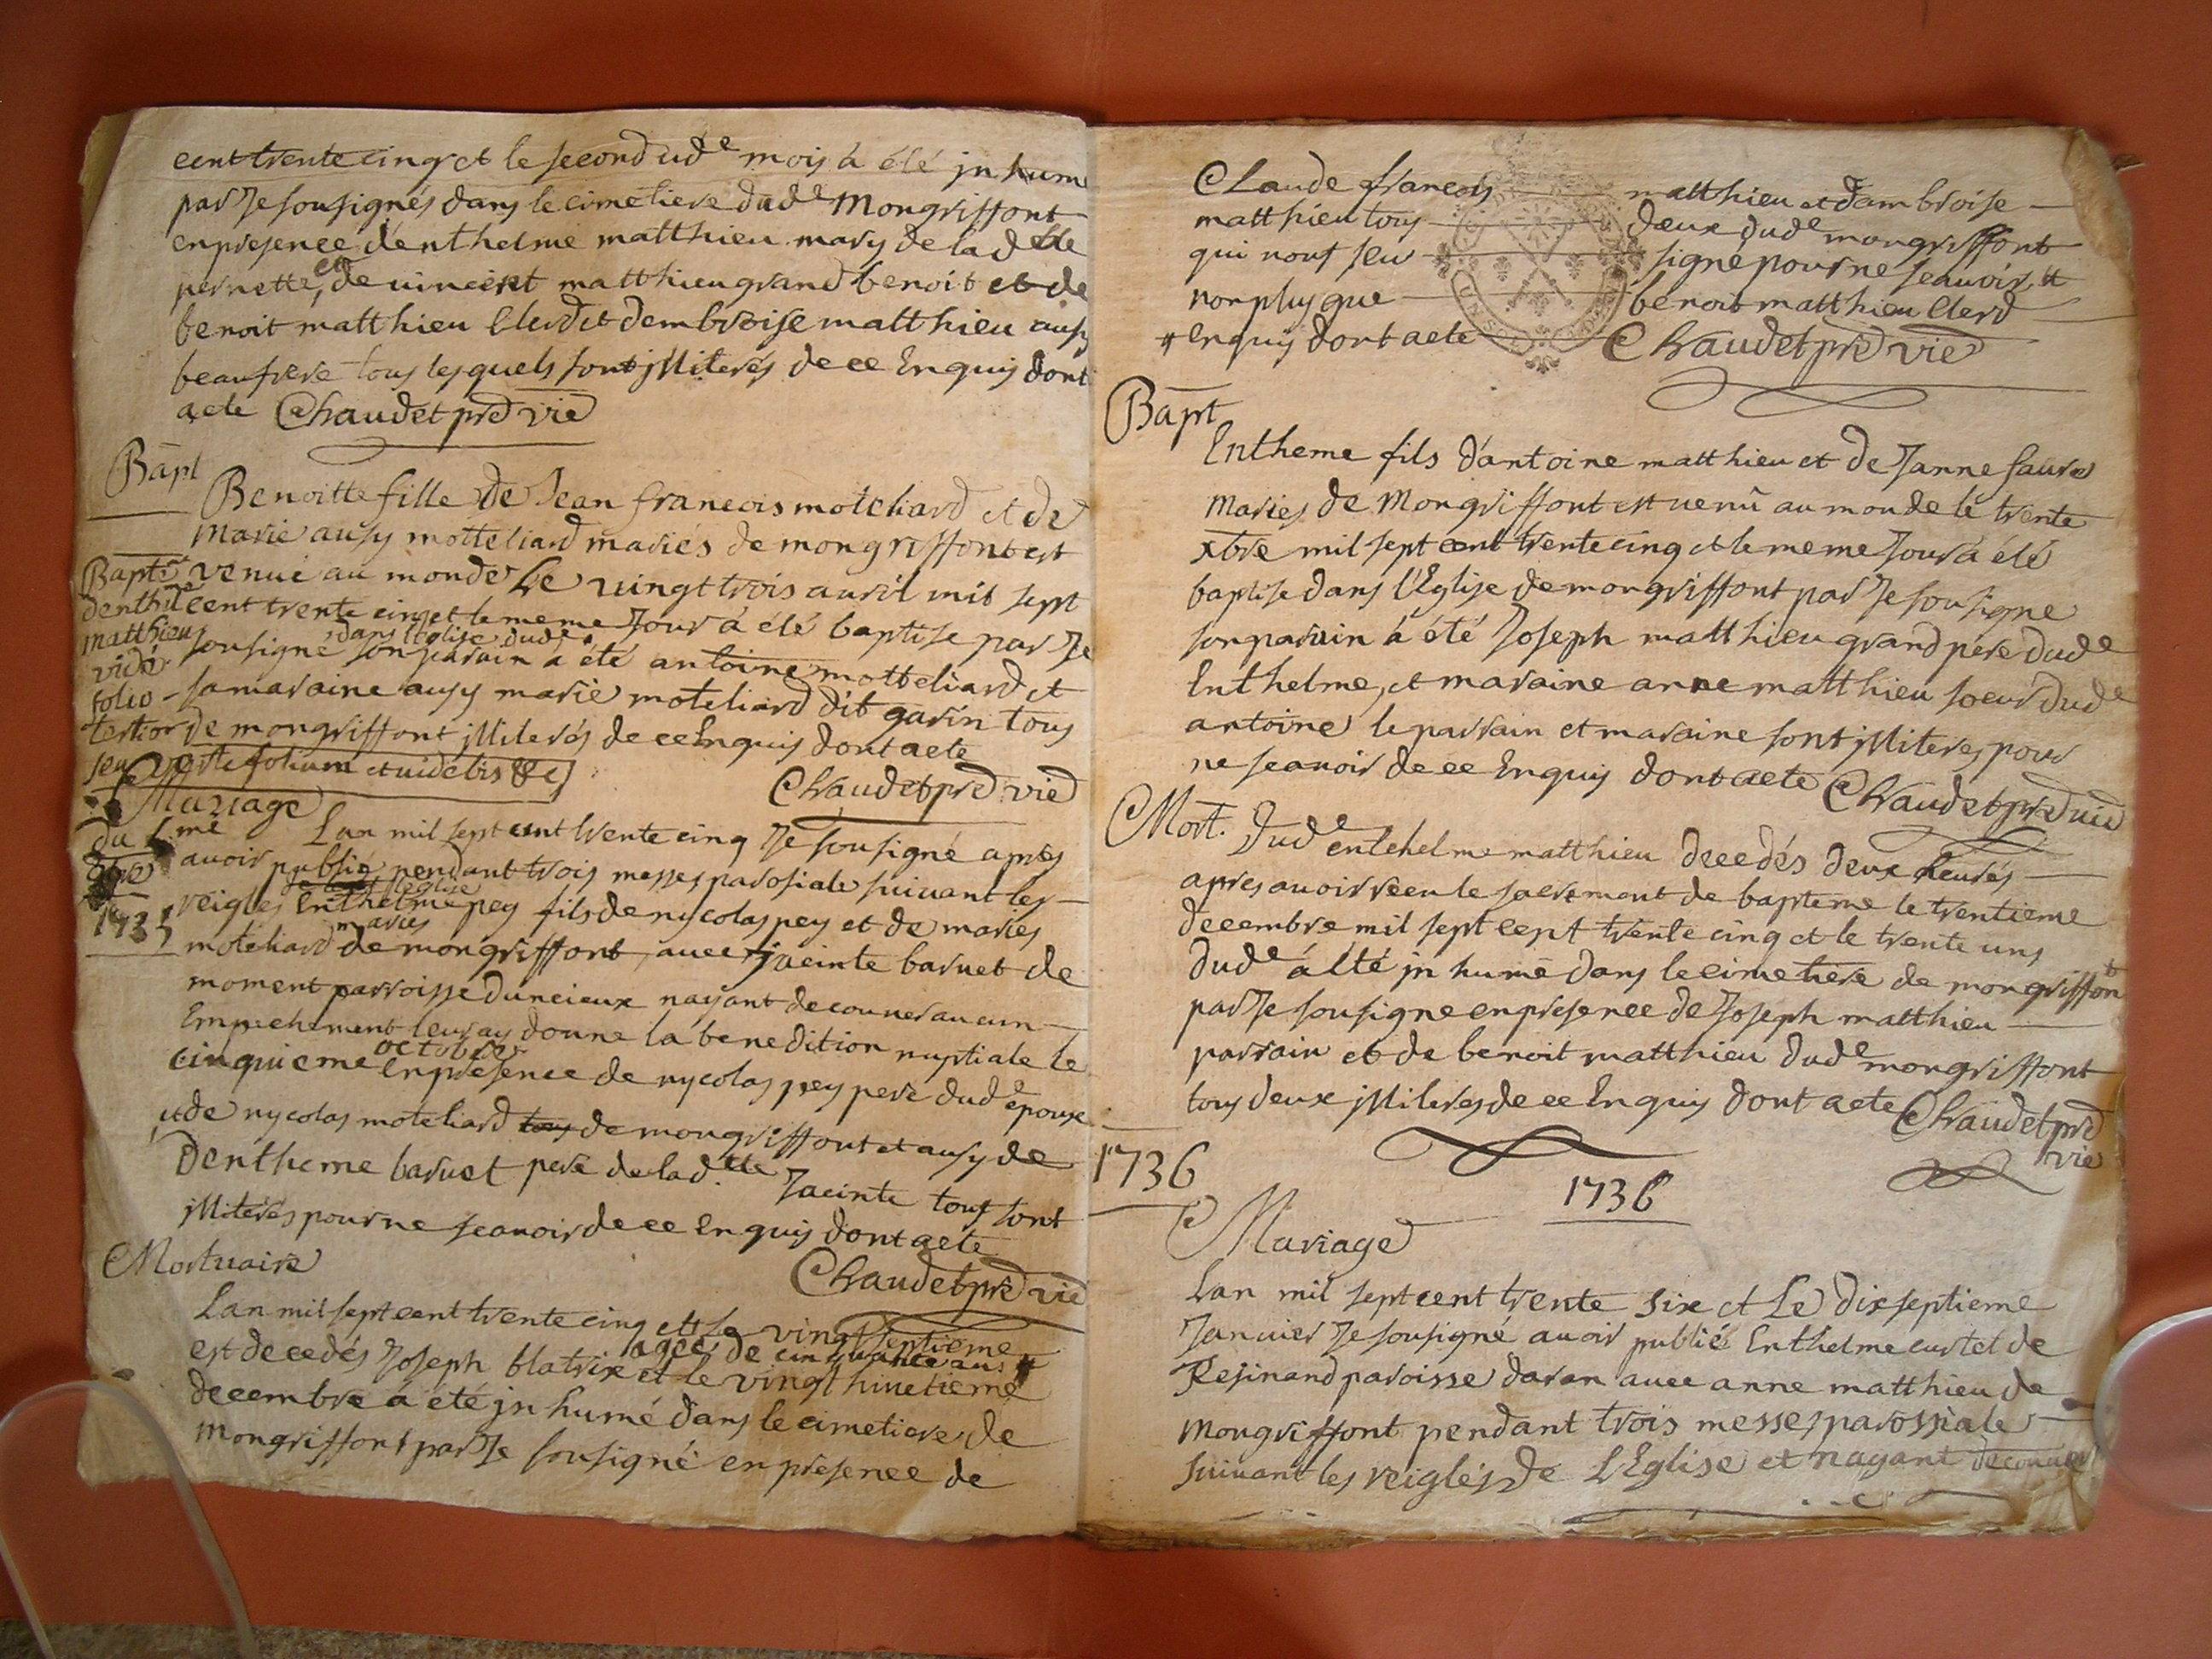 cent trente cinq et le second ud.e mois à élé jn humé
par Je sousignés dans le cimetiere dud.e Mongriffont
en presence denthelme matthieu mary de la d.elle
pernette, et de vincent matthieu grand benoit et de
benoit matthieu Clerd et dembroise matthieu ausy
beaufrere tous lesquels sont jlliterés de ce Enquis dont
acte Chaudet pred vie
Bapt
Benoitte fille de Jean francois moteliard et de
Marie ausy motteliard mariés de mongriffont est
venue au monde Le vingt trois auril mil sept
cent trente cinq et le meme Jour à élé baptise par Je
dans l'Eglise dud.e
sousigné son parain a été antoine motteliard et
sa maraine ausy marie moteliard dit garin tous
de mongriffont jlliterés de ce Enquis dont acte
Chaudet pred vie
Bapte
denthe
matthieu
vide
folio
tertior
seu verte folium et uidebis &c
Mariage
du 5.me
8bre
1735
Lan mil sept cent trente cinq Je sousigné apres
avoir publié pendant trois messes parosiale suiuant les
de l'église
reigles Enthelme pey fils de nycolas pey et de maries
mariés
moteliard de mongriffont, auec jacinte baruet de
moment parroisse duncieux nayant decouuer aucun
Empechement leur ay donne la benedition nuptiale le
octobre
cinquieme En presence de nycolas pey pere dud.e epoux
et de nycolas moteliard tous de mongriffont et ausy de
Dentheme baruet pere de lad.elle Jacinte tous sont
jlliterés pour ne scauoir de ce Enquis dont acte
Chaudet pred vie
Mortuaire
Lan mil sept cent trente cinq et le vingt septieme
agée de cinquante ans
est decedés Joseph blatrix et le vingt huictieme
decembre a été jn humé dans le cimetiere de
Mongriffont par Je sousigné en presence de
Claude francois matthieu et dambroise
matthieu tous deux dud.e mongriffont
qui nous seu signe pour ne scauoir #
non plus que benoit matthieu Clerd
# Enquis dont acte Chaudet pred vie
Bapt
Entheme fils dantoine matthieu et de Janne faure
Mariés de Mongriffont est uenû au monde le trente
xbre mil sept cent trente cinq et le meme Jour à élé
baptise dans l'Eglise de mongriffont par Je sousigne
son parain à été Joseph matthieu grand pere dud.e
Enthelme, et maraine anne matthieu soeur dud.e
antoine le parrain et maraine sont jlliteres pour
ne scauoir de ce Enquis dont acte Chaudet pred vie
Mort. dud.e entehelme matthieu decedés deux heures
apres auoir receu le sacrement de bapteme le trentieme
decembre mil sept cent trente cinq et le trente uns
dud.e à lté jn humé dans le cimetiere de mongriffont
par Je sousigne en presence de Joseph matthieu
parrain et de benoit matthieu dud.e mongriffont
tous deux jlliteres de ce Enquis dont acte Chaudet pred
vie
1736
1736
Mariage
Lan mil sept cent trente six et Le dixseptieme
Januier Je sousigné auoir publié Enthelme curtet de
Resinand paroisse daran auec anne matthieu de
Mongriffont pendant trois messes parossiale
suiuant les reiglés de L'Eglise et nayant decouuer